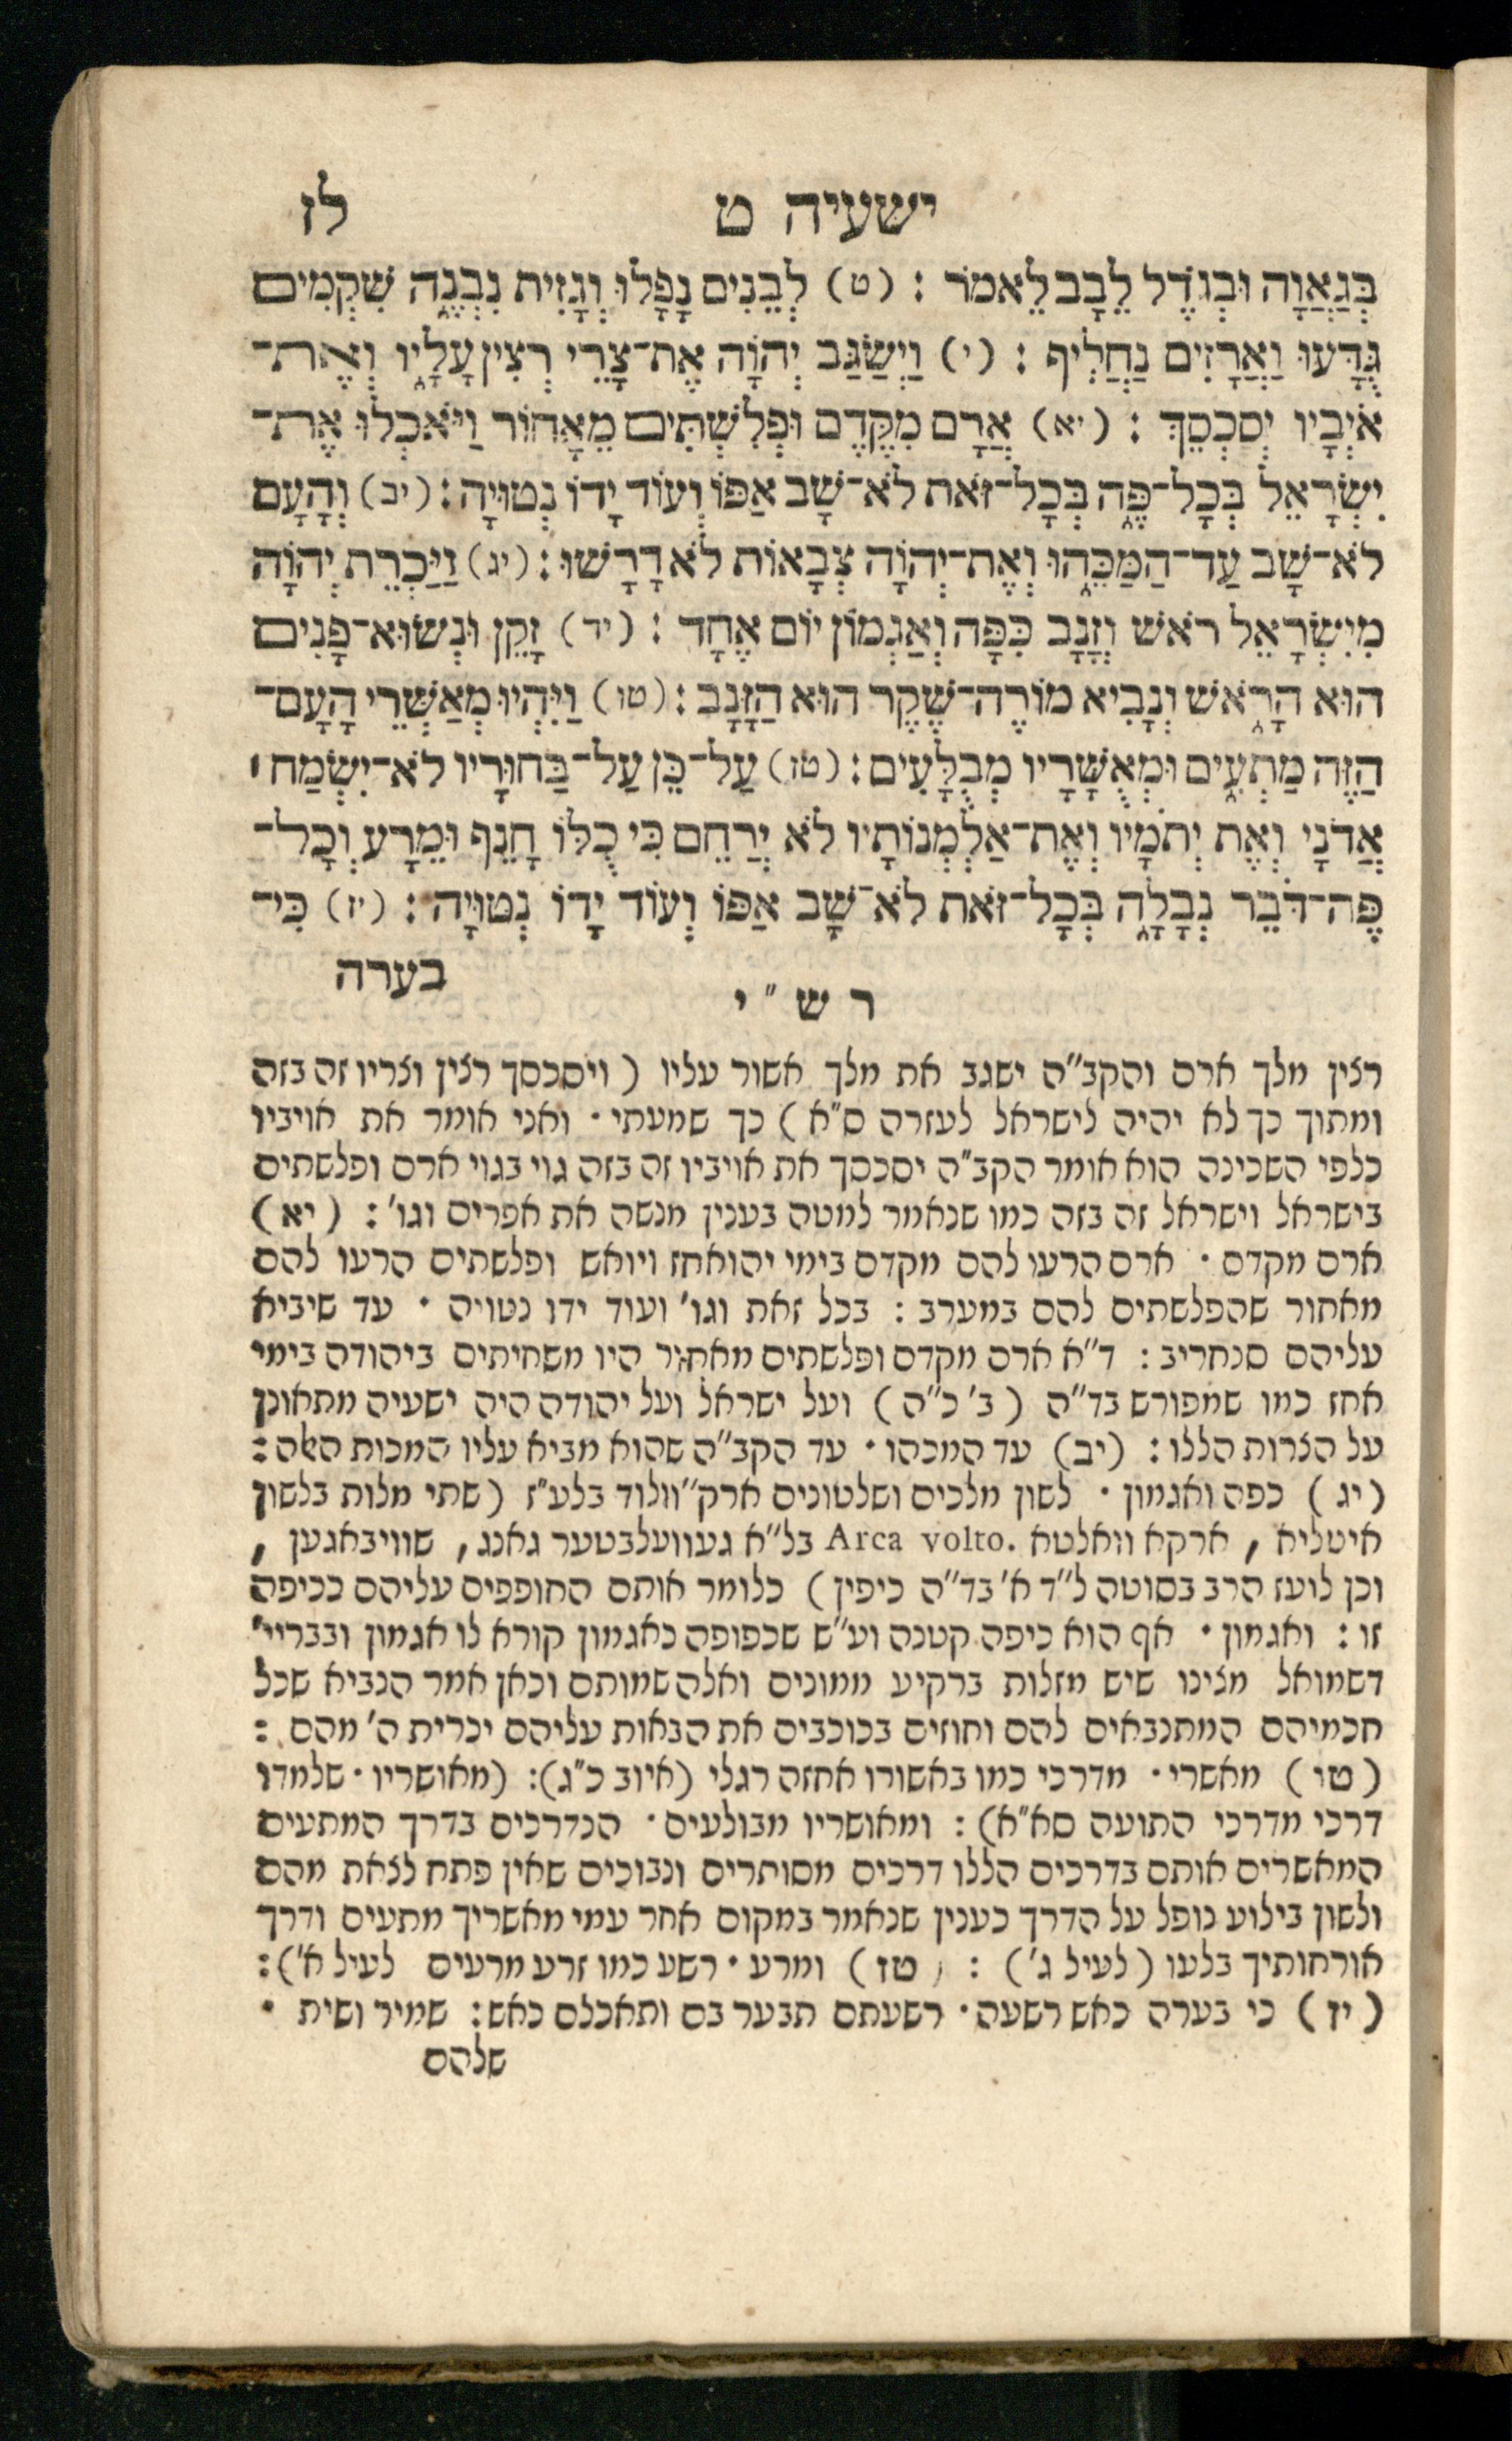 ישעיה ט לז
בְּגַאֲוָה וּבְגֹדֶל לֵבָב לֵאמֹר : (ט) לְבֵנִים נָפָלוּ וְגָזִית נִבְנֶה שִׁקְמִים
גֻּדָּעוּ וַאֲרָזִים נַחֲלִיף : (י) וַיְשַׂגֵּב יְהוָֹה אֶת־צָרֵי רְצִין עָלָיו וְאֶת־
אֹיְבָיו יְסַכְסֵךְ : (יא) אֲרָם מִקֶּדֶם וּפְלִשְׁתִּים מֵאָחוֹר וַיֹּאכְלוּ אֶת־
יִשְׂרָאֵל בְּכָל־פֶּה בְּכָל־זֹאת לֹא־שָׁב אַפּוֹ וְעוֹד יָדוֹ נְטוּיָה : (יב) וְהָעָם
לֹא־שָׁב עַד־הַמַּכֵּהוּ וְאֶת־יְהוָֹה צְבָאוֹת לֹא דָרָשׁוּ : (יג) וַיַּכְרֵת יְהוָֹה
מִיִשְׂרָאֵל רֹאשׁ וְזָנָב כִּפָּה וְאַגְמוֹן יוֹם אֶחָד : (יד) זָקֵן וּנְשׂוּא־פָנִים
הוּא הָרֹאשׁ וְנָבִיא מוֹרֶה־שֶּׁקֶר הוּא הַזָּנָב : (טו) וַיִּהְיוּ מְאַשְּׁרֵי הָעָם־
הַזֶּה מַתְעִים וּמְאֻשָּׁרָיו מְבֻלָּעִים : (טז) עַל־כֵּן עַל־בַּחוּרָיו לֹא־יִשְׂמַח ׀
אֲדֹנָי וְאֶת יְתֹמָיו וְאֶת־אַלְמְנוֹתָיו לֹא יְרַחֵם כִּי כֻלּוֹ חָנֵף וּמֵרַע וְכָל־
פֶּה־דֹּבֵר נְבָלָה בְּכָל־זֹאת לֹא־שָׁב אַפּוֹ וְעוֹד יָדוֹ נְטוּיָה : (יז) כִּי־
בערה
ר ש "י
רצין מלך ארם והקב"ה ישגב את מלך אשור עליו (ויסכסך רצין וצריו זה בזה
ומתוך כך לא יהיה לישראל לעזרה ס"א) כך שמעתי · ואני אומר את אויביו
כלפי השכינה הוא אומר הקב"ה יסכסך את אויביו זה בזה גוי בגוי ארם ופלשתים
בישראל וישראל זה בזה כמו שנאמר למטה בענין מנשה את אפרים וגו' : (יא)
ארם מקדם · ארם הרעו להם מקדם בימי יהואחז ויואש ופלשתים הרעו להם
מאחור שהפלשתים להם במערב : בכל זאת וגו' ועוד ידו נטויה · עד שיביא
עליהם סנחריב : ד"א ארם מקדם ופלשתים מאחור היו משחיתים ביהודה בימי
אחז כמו שמפורש בד"ה (ב' כ"ה) ועל ישראל ועל יהודה היה ישעיה מתאונן
על הצרות הללו : (יב) עד המכהו · עד הקב"ה שהוא מביא עליו המכות האלה :
(יג) כפה ואגמון · לשון מלכים ושלטונים ארק"וולוד בלע"ז (שתי מלות בלשון
איטליא, ארקא וואלטא Arca volto. בל"א געוועלבטער גאנג, שוויבאגען,
וכן לועז הרב בסוטה ל"ד א' בד"ה כיפין) כלומר אותם החופפים עליהם ככיפה
זו : ואגמון · אף הוא כיפה קטנה וע"ש שכפופה כאגמון קורא לו אגמון ובבריי'
דשמואל מצינו שיש מזלות ברקיע ממונים ואלה שמותם וכאן אמר הנביא שכל
חכמיהם המתנבאים להם וחוזים בכוכבים את הבאות עליהם יכרית ה' מהם :
(טו) מאשרי · מדרכי כמו באשורו אחזה רגלי (איוב כ"ג): (מאושריו · שלמדו
דרכי מדרכי התועה סא"א) : ומאושריו מבולעים · הנדרכים בדרך המתעים
המאשרים אותם בדרכים הללו דרכים מסותרים ונבוכים שאין פתח לצאת מהם
ולשון בילוע נופל על הדרך כענין שנאמר במקום אחר עמי מאשריך מתעים ודרך
אורחותיך בלעו (לעיל ג') : (טז) ומרע · רשע כמו זרע מרעים לעיל א') :
(יז) כי בערה כאש רשעה · רשעתם תבער בם ותאכלם כאש : שמיר ושית ·
שלהם